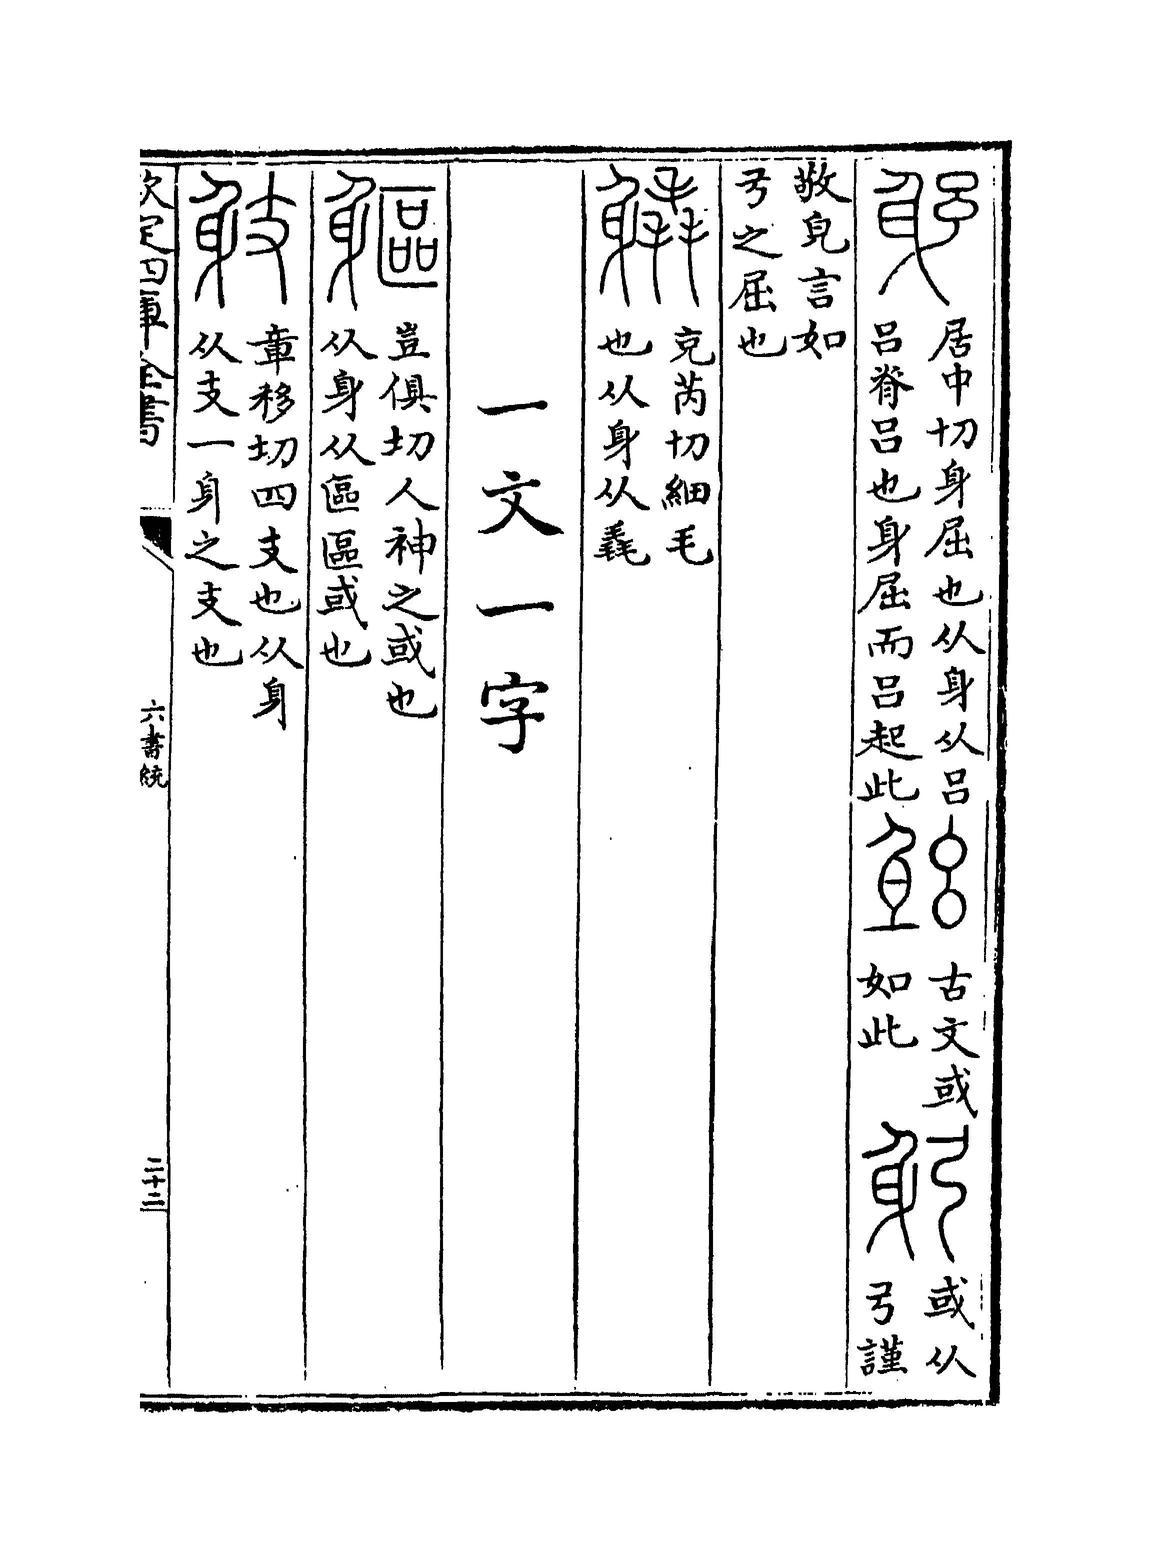 躳
居中切身屈也从身从吕
吕脊吕也身屈而吕起此
古文或
如此
躬
或从
弓謹
敬皃言如
弓之屈也
克芮切細毛
也从身从毳
一文一字
軀
豈俱切人神之或也
从身从區區或也
章移切四支也从身
从支一身之支也
欽定四庫全書
六書統
二十二